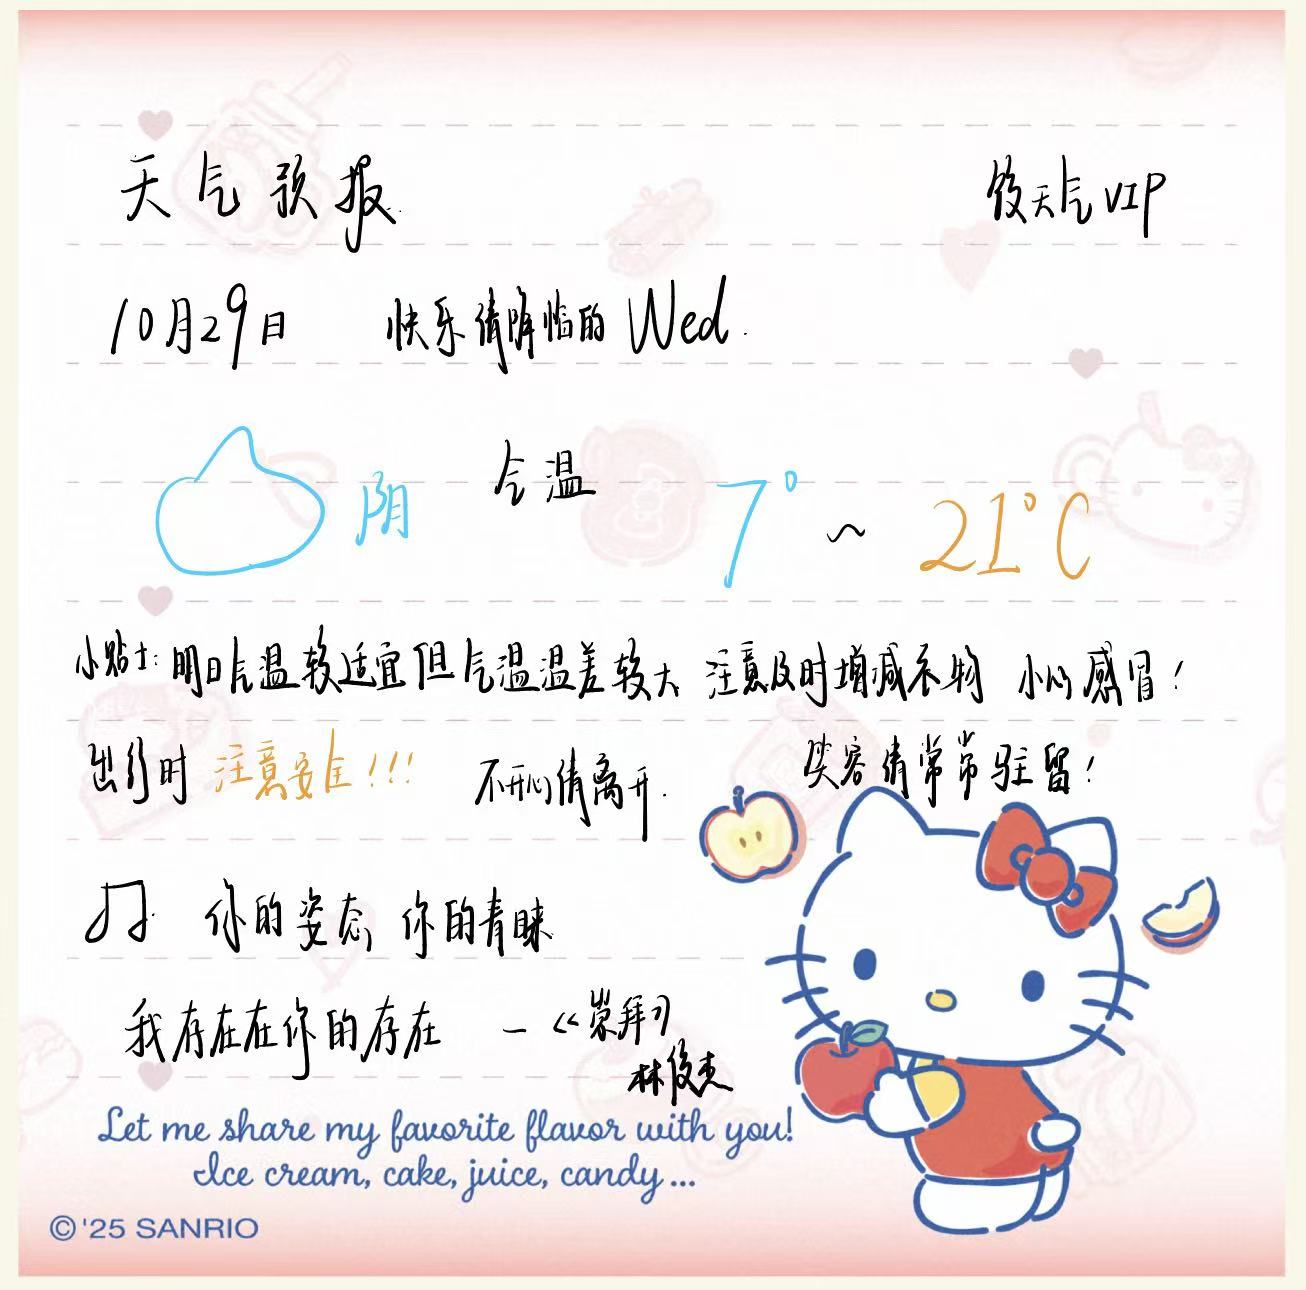 天气预报 饺天气VIP
10月29日 快乐请降临的 Wed.
阴 气温 7° ~ 21°C
小贴士: 明日气温较适宜但气温温差较大 注意及时增减衣物 小心感冒!
出行时 注意安全!!! 不开心请离开. 笑容请常常驻留!
你的姿态 你的青睐
我存在在你的存在 — 《崇拜》
林俊杰
Let me share my favorite flavor with you!
Ice cream, cake, juice, candy...
©'25 SANRIO